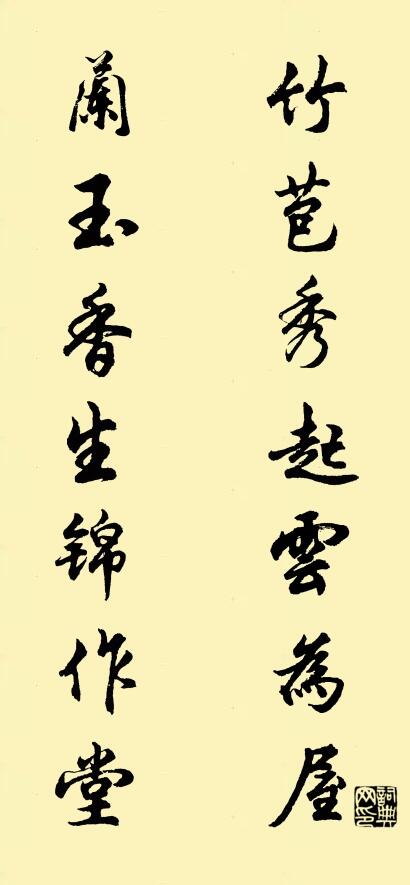 竹苞秀起雲為屋
蘭玉香生錦作堂
詞典网印